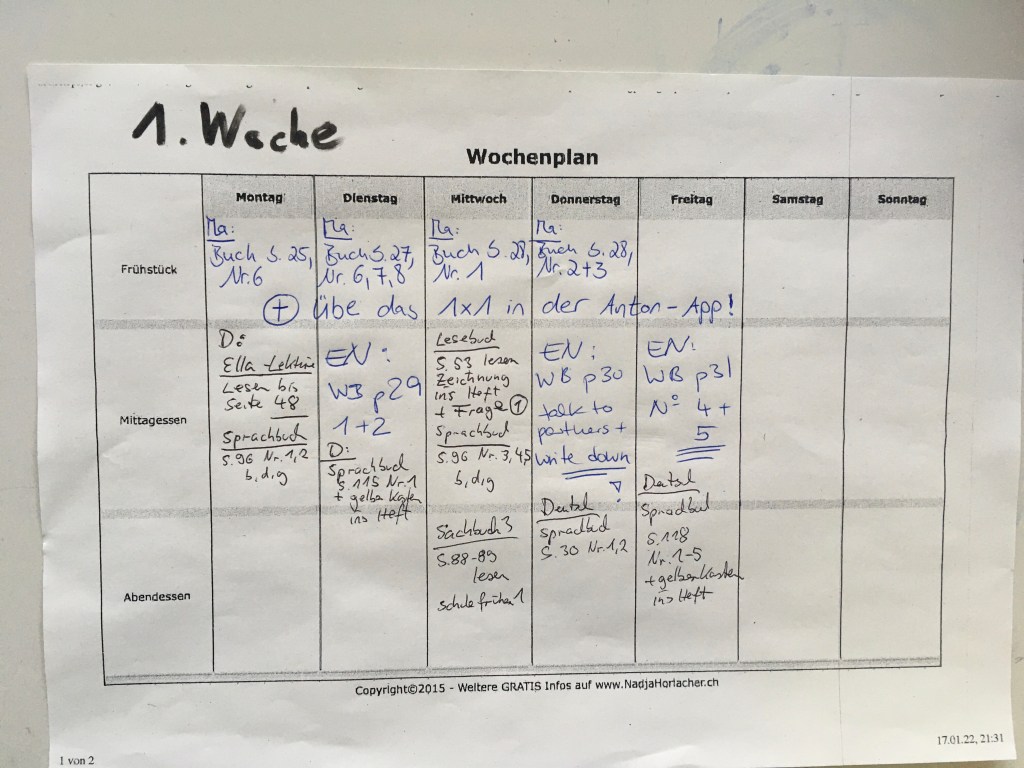 1. Woche
Wochenplan
Montag
Dienstag
Mittwoch
Donnerstag
Freitag
Samstag
Sonntag
Frühstück
Ma:
Buch S. 25,
Nr. 6
Ma:
Buch S. 27,
Nr. 6, 7, 8
Ma:
Buch S. 28,
Nr. 1
Ma:
Buch S. 28,
Nr. 2+3
+ übe das 1x1 in der Anton-App!
Mittagessen
D:
Ella-Lektüre
Lesen bis
Seite 48
Sprachbuch
S. 96 Nr. 1, 2
b, d, g
EN:
WB p 29
1+2
D:
Sprachbuch
S. 115 Nr. 1
+ gelber Kasten
ins Heft
Lesebuch
S. 53 lesen
Zeichnung
ins Heft
+ Frage 1
Sprachbuch
S. 96 Nr. 3, 4, 5
b, d, g
EN:
WB p 30
talk to
partners +
write down
!
EN:
WB p 31
N° 4 +
5
Abendessen
Sachbuch 3
S. 88-89
lesen
Deutsch
Sprachbuch
S. 30 Nr. 1, 2
Deutsch
Sprachbuch
S. 118
Nr. 1-5
+ gelber Kasten
ins Heft
Copyright©2015 - Weitere GRATIS Infos auf www.NadjaHorlacher.ch
17.01.22, 21:31
1 von 2